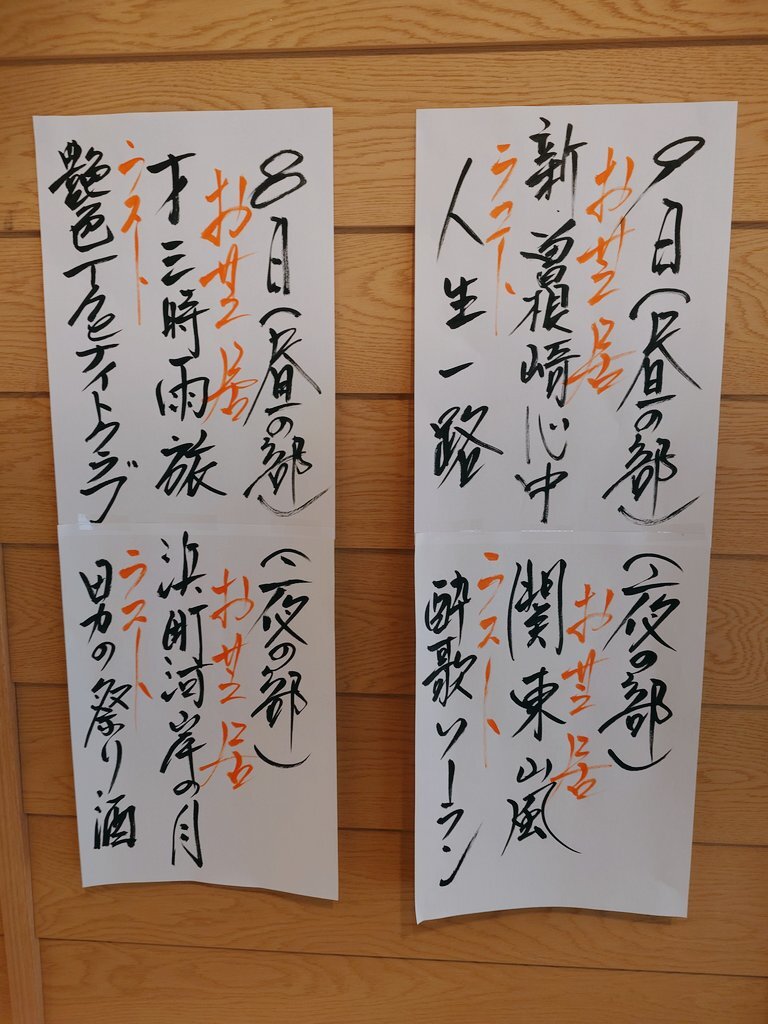 8日(昼の部)
お芝居
才三時雨旅
ラスト
艶色 ナイトクラブ
(夜の部)
お芝居
浜町河岸の月
ラスト
男の祭り酒
9日(昼の部)
お芝居
新曽根崎心中
ラスト
人生一路
(夜の部)
お芝居
関東山嵐
ラスト
酔歌ソーラン